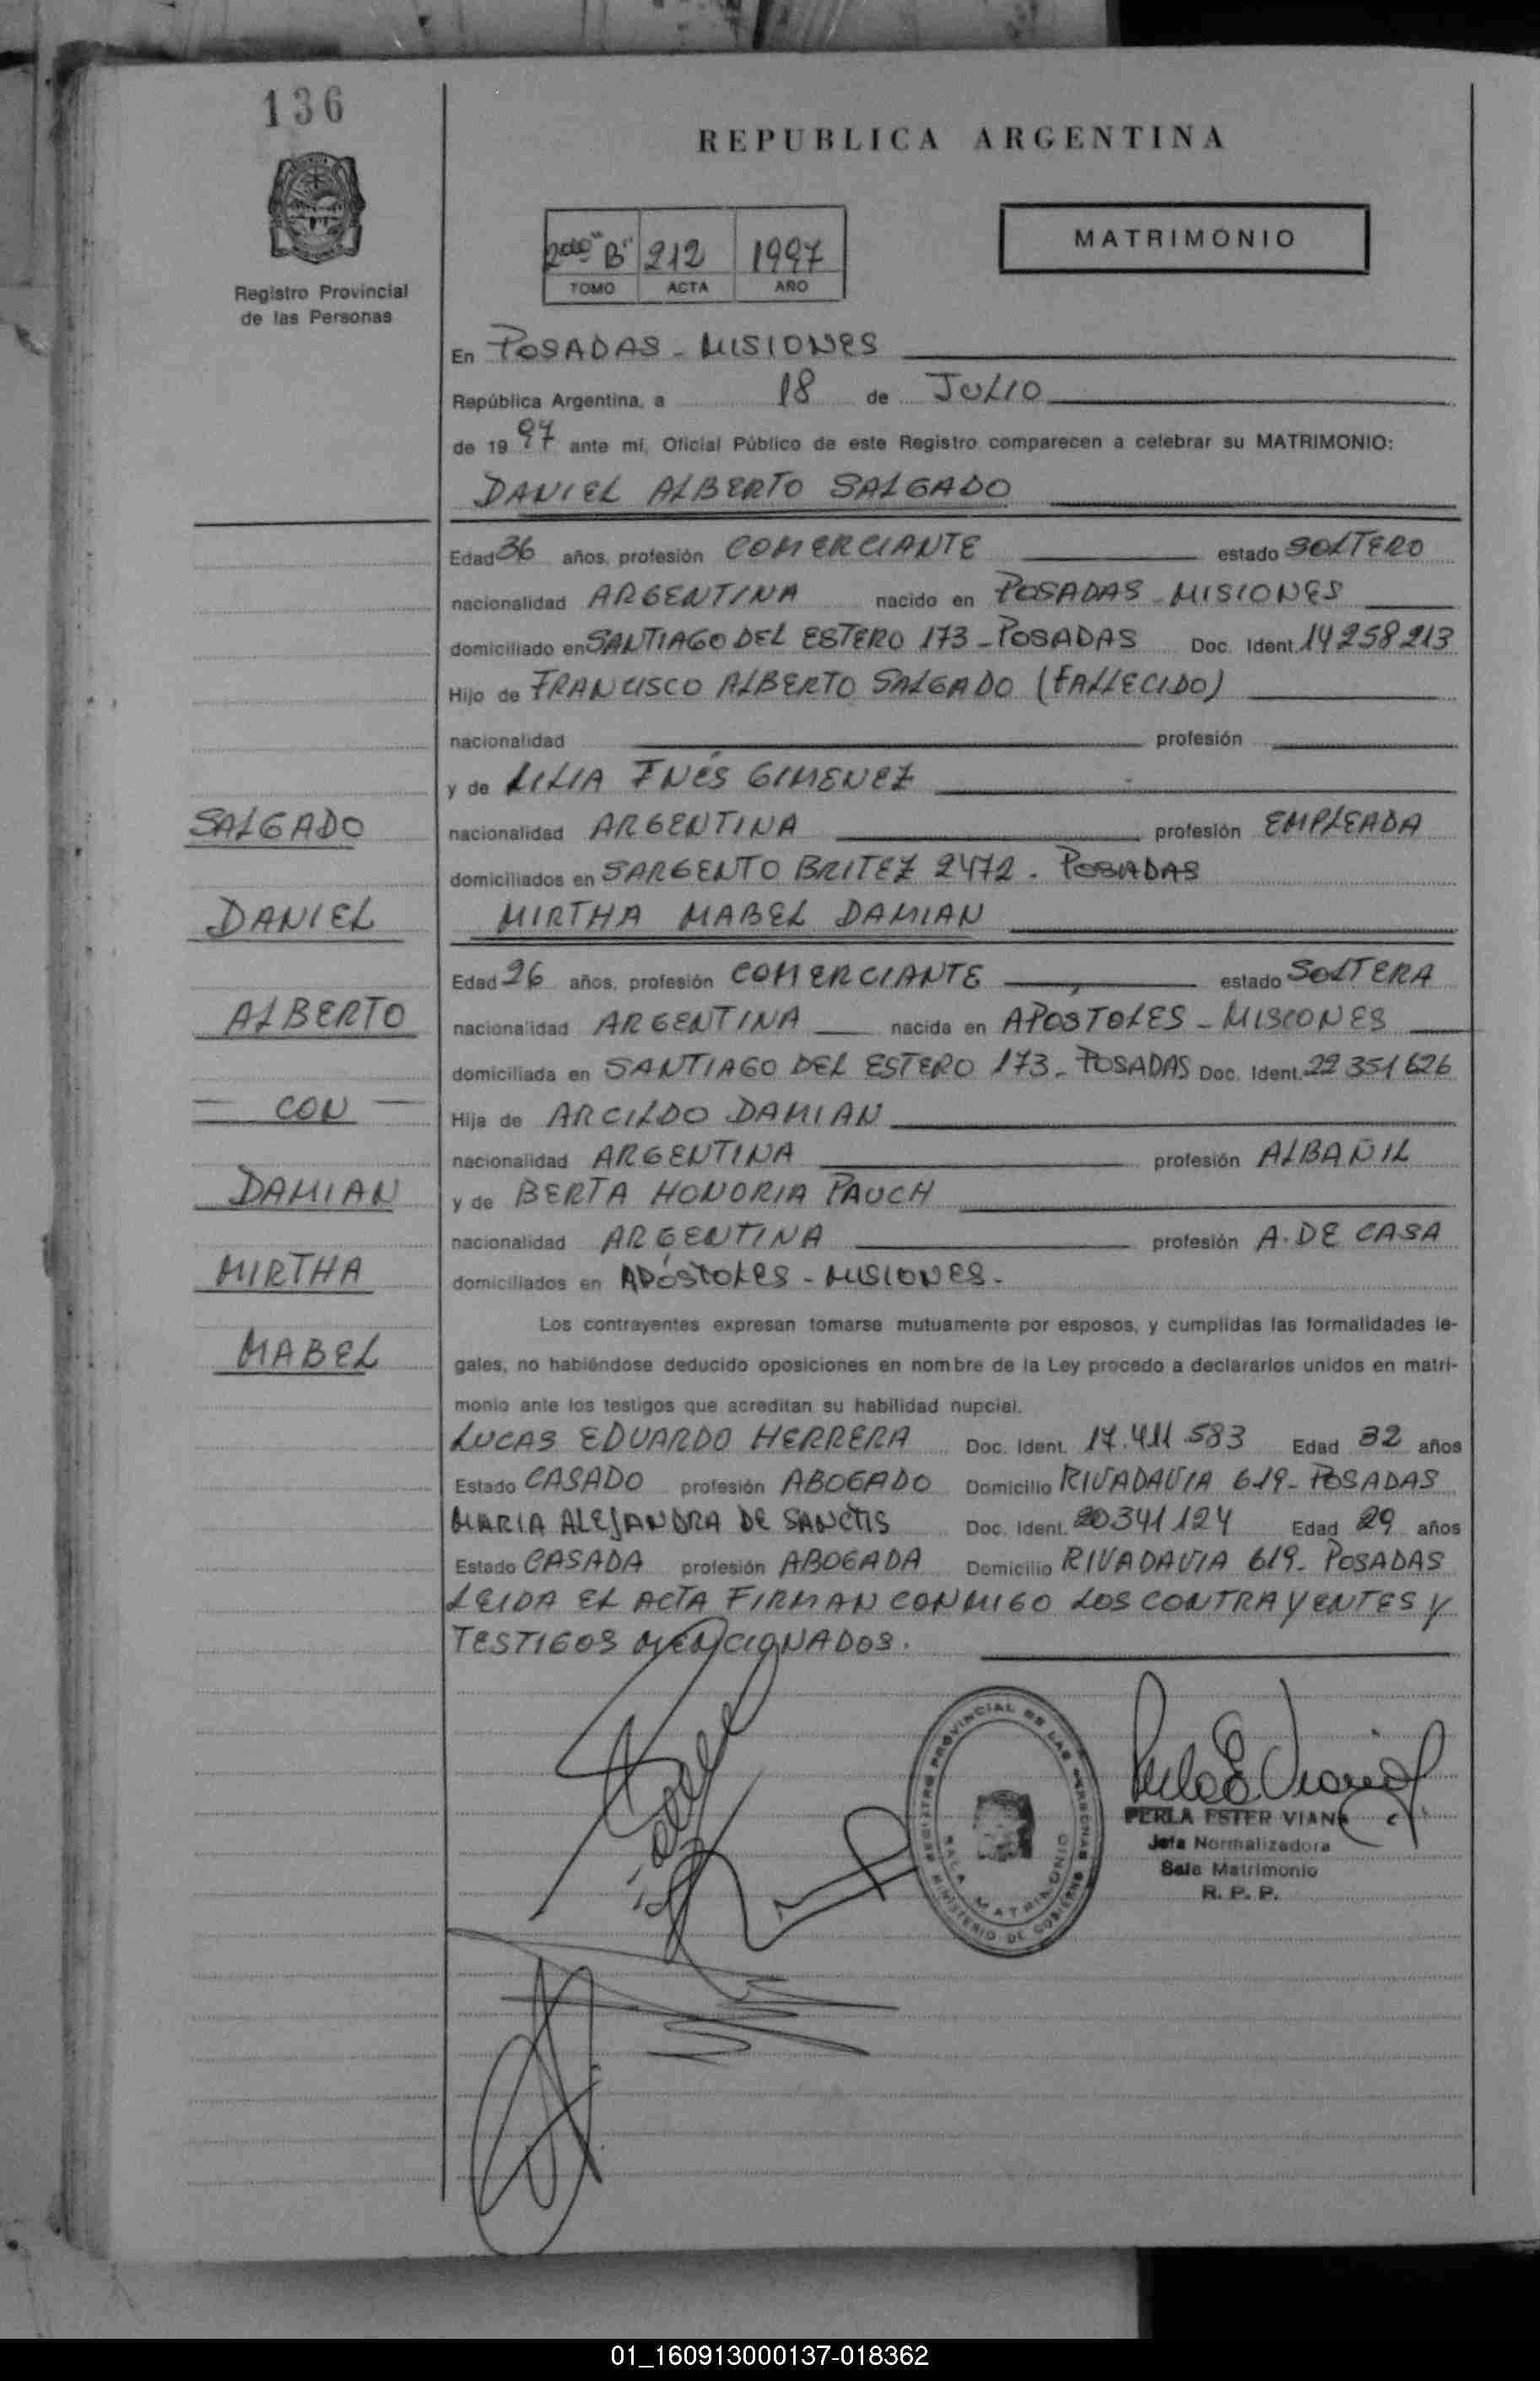 136
REPUBLICA ARGENTINA
2do "B" 212 1997
TOMO ACTA AÑO
MATRIMONIO
Registro Provincial
de las Personas
En POSADAS - MISIONES
República Argentina, a 18 de JULIO
de 1997 ante mí, Oficial Público de este Registro comparecen a celebrar su MATRIMONIO:
DANIEL ALBERTO SALGADO
Edad 36 años, profesión COMERCIANTE estado SOLTERO
nacionalidad ARGENTINA nacido en POSADAS - MISIONES
domiciliado en SANTIAGO DEL ESTERO 173 - POSADAS Doc. Ident. 14 258 213
Hijo de FRANCISCO ALBERTO SALGADO (FALLECIDO)
nacionalidad profesión
y de LILIA INÉS GIMENEZ
nacionalidad ARGENTINA profesión EMPLEADA
domiciliados en SARGENTO BRITEZ 2472 - POSADAS
MIRTHA MABEL DAMIAN
Edad 26 años, profesión COMERCIANTE estado SOLTERA
nacionalidad ARGENTINA nacida en APOSTOLES - MISIONES
domiciliada en SANTIAGO DEL ESTERO 173 - POSADAS Doc. Ident. 22 351 626
Hija de ARCILDO DAMIAN
nacionalidad ARGENTINA profesión ALBAÑIL
y de BERTA HONORIA PAUCH
nacionalidad ARGENTINA profesión A. DE CASA
domiciliados en APÓSTOLES - MISIONES -
SALGADO
DANIEL
ALBERTO
— CON —
DAMIAN
MIRTHA
MABEL
Los contrayentes expresan tomarse mutuamente por esposos, y cumplidas las formalidades le-
gales, no habiéndose deducido oposiciones en nombre de la Ley procedo a declararlos unidos en matri-
monio ante los testigos que acreditan su habilidad nupcial.
LUCAS EDUARDO HERRERA Doc. Ident. 17.411.583 Edad 32 años
Estado CASADO profesión ABOGADO Domicilio RIVADAVIA 619 - POSADAS
MARIA ALEJANDRA DE SANCTIS Doc. Ident. 20341124 Edad 29 años
Estado CASADA profesión ABOGADA Domicilio RIVADAVIA 619 - POSADAS
LEIDA EL ACTA FIRMAN CONMIGO LOS CONTRAYENTES Y
TESTIGOS MENCIONADOS.
REGISTRO PROVINCIAL DE LAS PERSONAS
SALA MATRIMONIO
MINISTERIO DE GOBIERNO
PERLA ESTER VIANA
Jefa Normalizadora
Sala Matrimonio
R. P. P.
01_160913000137-018362